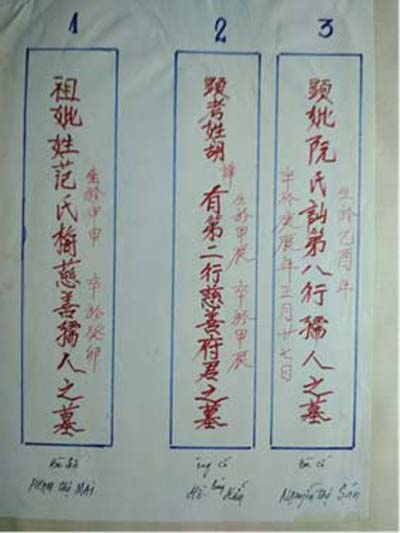 1
祖妣姓范氏梅慈善孺人之墓
生於甲申 卒於癸卯
PHẠM THỊ MAI
2
顯考姓胡諱有第二行慈善府君之墓
生於甲辰 卒於甲辰
ông cố
Hồ
3
顯妣阮氏訕第八行孺人之墓
生於乙酉年
卒於庚辰年正月廿七日
Bà cố
Nguyễn Thị